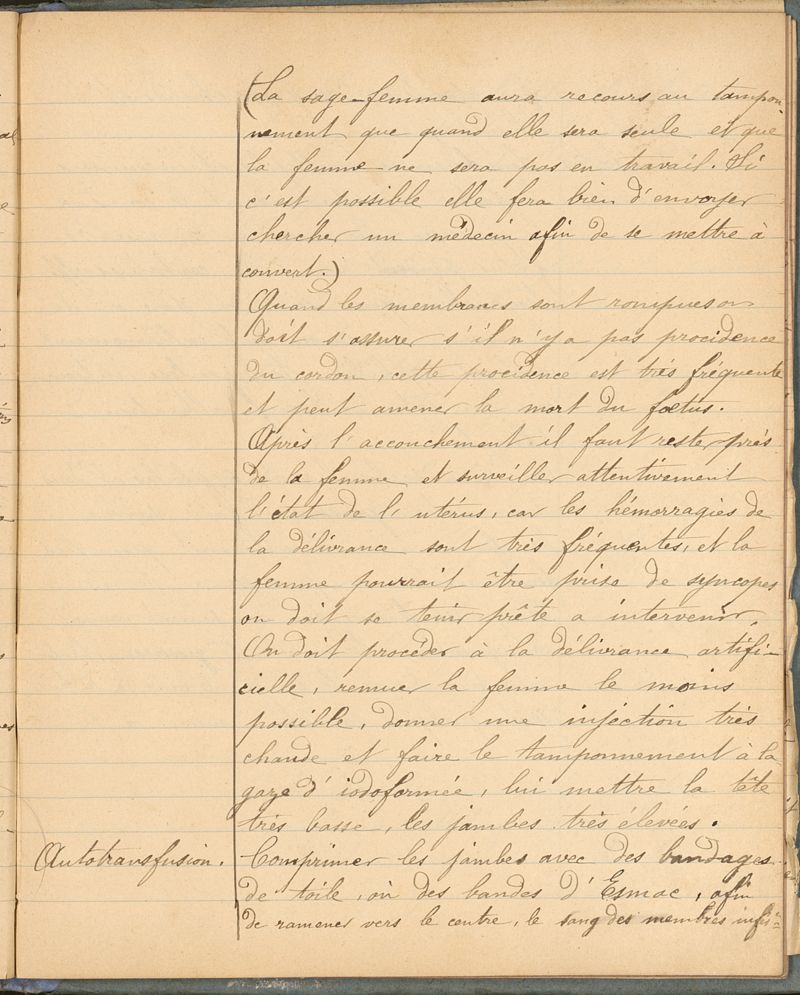 (La sage-femme aura recours au tampon-
nement que quand elle sera seule et que
la femme ne sera pas en travail. Si
c'est possible elle fera bien d'envoyer
chercher un médecin afin de se mettre à
couvert.)
Quand les membranes sont rompues on
doit s'assurer s'il n'y a pas procidence
du cordon, cette procidence est très fréquente
et peut amener la mort du fœtus.
Après l'accouchement il faut rester près
de la femme et surveiller attentivement
l'état de l'utérus, car les hémorragies de
la délivrance sont très fréquentes, et la
femme pourrait être prise de syncopes
on doit se tenir prête a intervenir.
On doit procéder à la délivrance artifi-
cielle, remuer la femme le moins
possible, donner une injection très
chaude et faire le tamponnement à la
gaze d'iodoformée, lui mettre la tête
très basse, les jambes très élevées.
Autotransfusion. Comprimer les jambes avec des bandages
de toile, où des bandes d'Esmac, afin
de ramener vers le centre, le sang des membres infé-